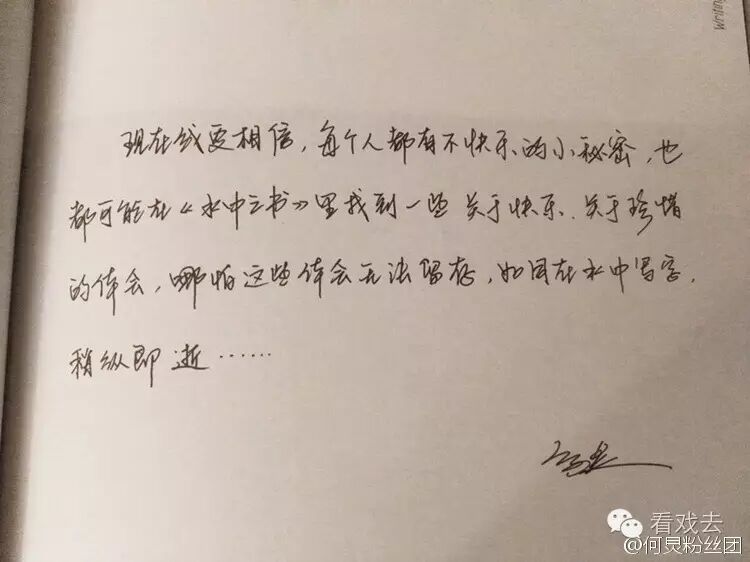 现在我更相信，每个人都有不快乐的小秘密，也
都可能在《水中之书》里找到一些关于快乐、关于珍惜
的体会，哪怕这些体会无法留存，如同在水中写字，
稍纵即逝……
看戏去
@何炅粉丝团